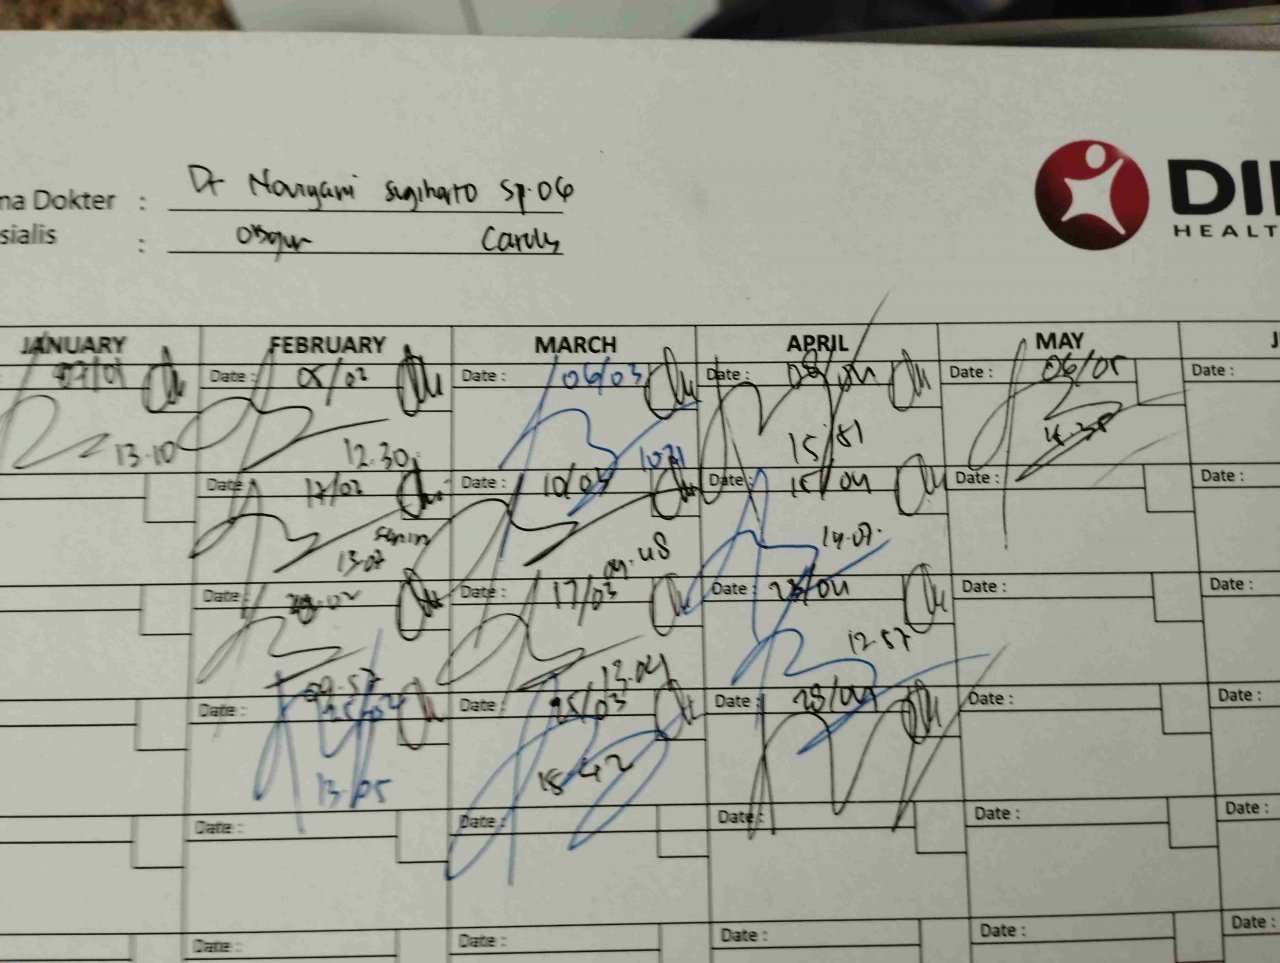 ma Dokter : Dr Novryani Sugiharto Sp.OG
sialis : Obgyn
DI
HEALT
JANUARY FEBRUARY MARCH APRIL MAY J
07/01 Date : 05/02 Date : 06/03 Date : 08/04 Date : 06/05 Date :
13.10 12.30 10.31 15.
Date : 17/02 Date : 10/03 Date : 15/04 Date : Date :
Senin
13.07 09.48 14.07
Date : Date : 17/03 Date : 23/04 Date : Date :
09.57 13.04 12.57
Date : 25/02 Date : 25/03 Date : 28/04 Date : Date :
13.05 18.42
Date : Date : Date : Date : Date :
Date : Date : Date : Date : Date :